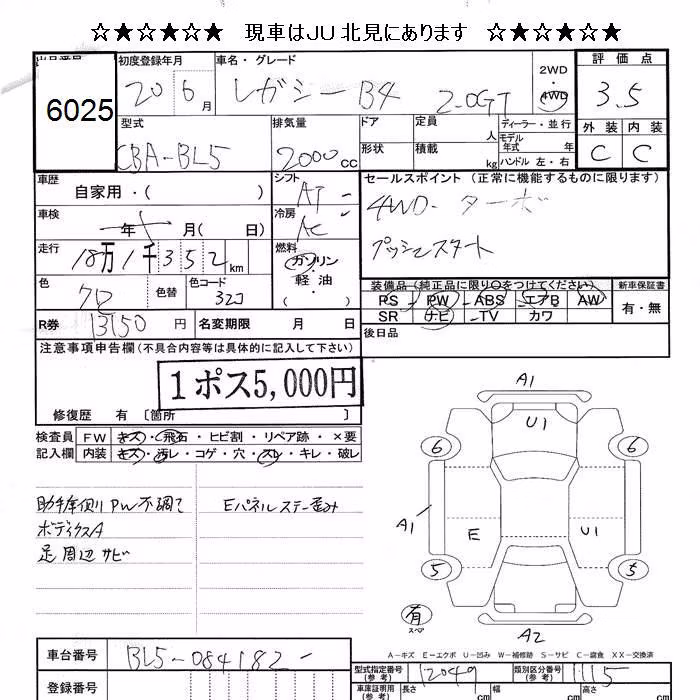 ☆★☆★☆★ 現車はJU北見にあります ☆★☆★☆★
初度登録年月 車名・グレード 2WD ・ 4WD 評価点
6025 20 6月 レガシーB4 2.0GT 3.5
型式 排気量 ドア 定員 人 ディーラー・並行 外装 内装
CBA-BL5 2000cc 形状 積載 kg モデル年式 年 ハンドル 左・右 C C
車歴 自家用・( ) シフト AT セールスポイント (正常に機能するものに限ります)
車検 年 月(日) 冷房 AC 4WD-ターボ
走行 18万1千352km 燃料 ガソリン・軽油・( ) プッシュスタート
色 クロ 色替 色コード 32J 装備品(純正品に限り○をつけてください) 新車保証書
PS PW ABS エアB AW 有・無
SR ナビ TV カワ
R券 13150円 名変期限 月 日 後日品
注意事項申告欄(不具合内容等は具体的に記入して下さい)
1ポス5,000円
修復歴 有 〔箇所
検査員記入欄 FW キズ・飛石・ヒビ割・リペア跡・×要
内装 キズ・汚レ・コゲ・穴・スレ・キレ・破レ
助手席側PW不調て Eパネルステー歪み
ボディクスA
足周辺サビ
A1
U1
6 6
A1 E U1
5 5
有
スペア
A2
A-キズ E-エクボ U-凹み W-補修跡 S-サビ C-腐食 XX-交換済
車台番号 BL5-084182- 型式指定番号(参考) 12049 類別区分番号(参考) 1115
登録番号 車庫証明用(参考) 長さ cm 幅 cm 高さ cm